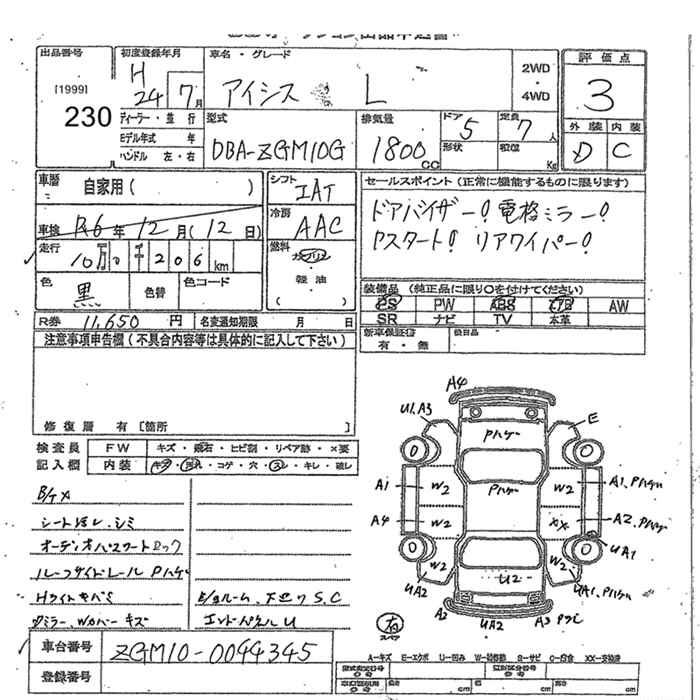 出品番号
[1999]
230
初度登録年月
H
24 7月
ディーラー・並行
モデル年式 年
ハンドル 左・右
車名・グレード
アイシス L
2WD
・
4WD
型式
DBA-ZGM10G
排気量
1800 CC
ドア 5
定員 7人
形状
積載 Kg
評価点
3
外装 内装
D C
車歴
自家用( )
車検 R6年12月(12日)
走行 10万0千206km
色 黒
色替
色コード
シフト
IAT
冷房
AAC
燃料
ガソリン
・
軽油
( )
セールスポイント (正常に機能するものに限ります)
ドアバイザー! 電格ミラー!
Pスタート! リアワイパー!
装備品 (純正品に限り○を付けてください)
PS PW ABS エアB AW
SR ナビ TV 本革
新車保証書
有・無
後日品
R券 11,650 円
名変通知期限 月 日
注意事項申告欄(不具合内容等は具体的に記入して下さい)
修復歴 有 [箇所 ]
検査員
記入欄
FW キズ・飛石・ヒビ割・リペア跡・×要
内装 キズ・汚れ・コゲ・穴・スレ・キレ・破レ
シート汚レ、シミ
オーディオパスワードロック
ルーフサイドレール Pハゲ
Hライトキバミ
Dミラー、Wカバー キズ
下廻り S、C
エンドパネル U
A4
U1.A3
E
Pハゲー
A1
W2
Pハゲー
W2
A1.Pハゲ
A4
W2
XX
A2.Pハゲ
UA1
W2
W2
UA2
U2
UA1.Pハゲ
A2
UA2
右
スペア
車台番号 ZGM10-0044345
登録番号
A=キズ E=エクボ U=凹み W=補修跡 S=サビ C=腐食 XX=交換済
cm cm cm